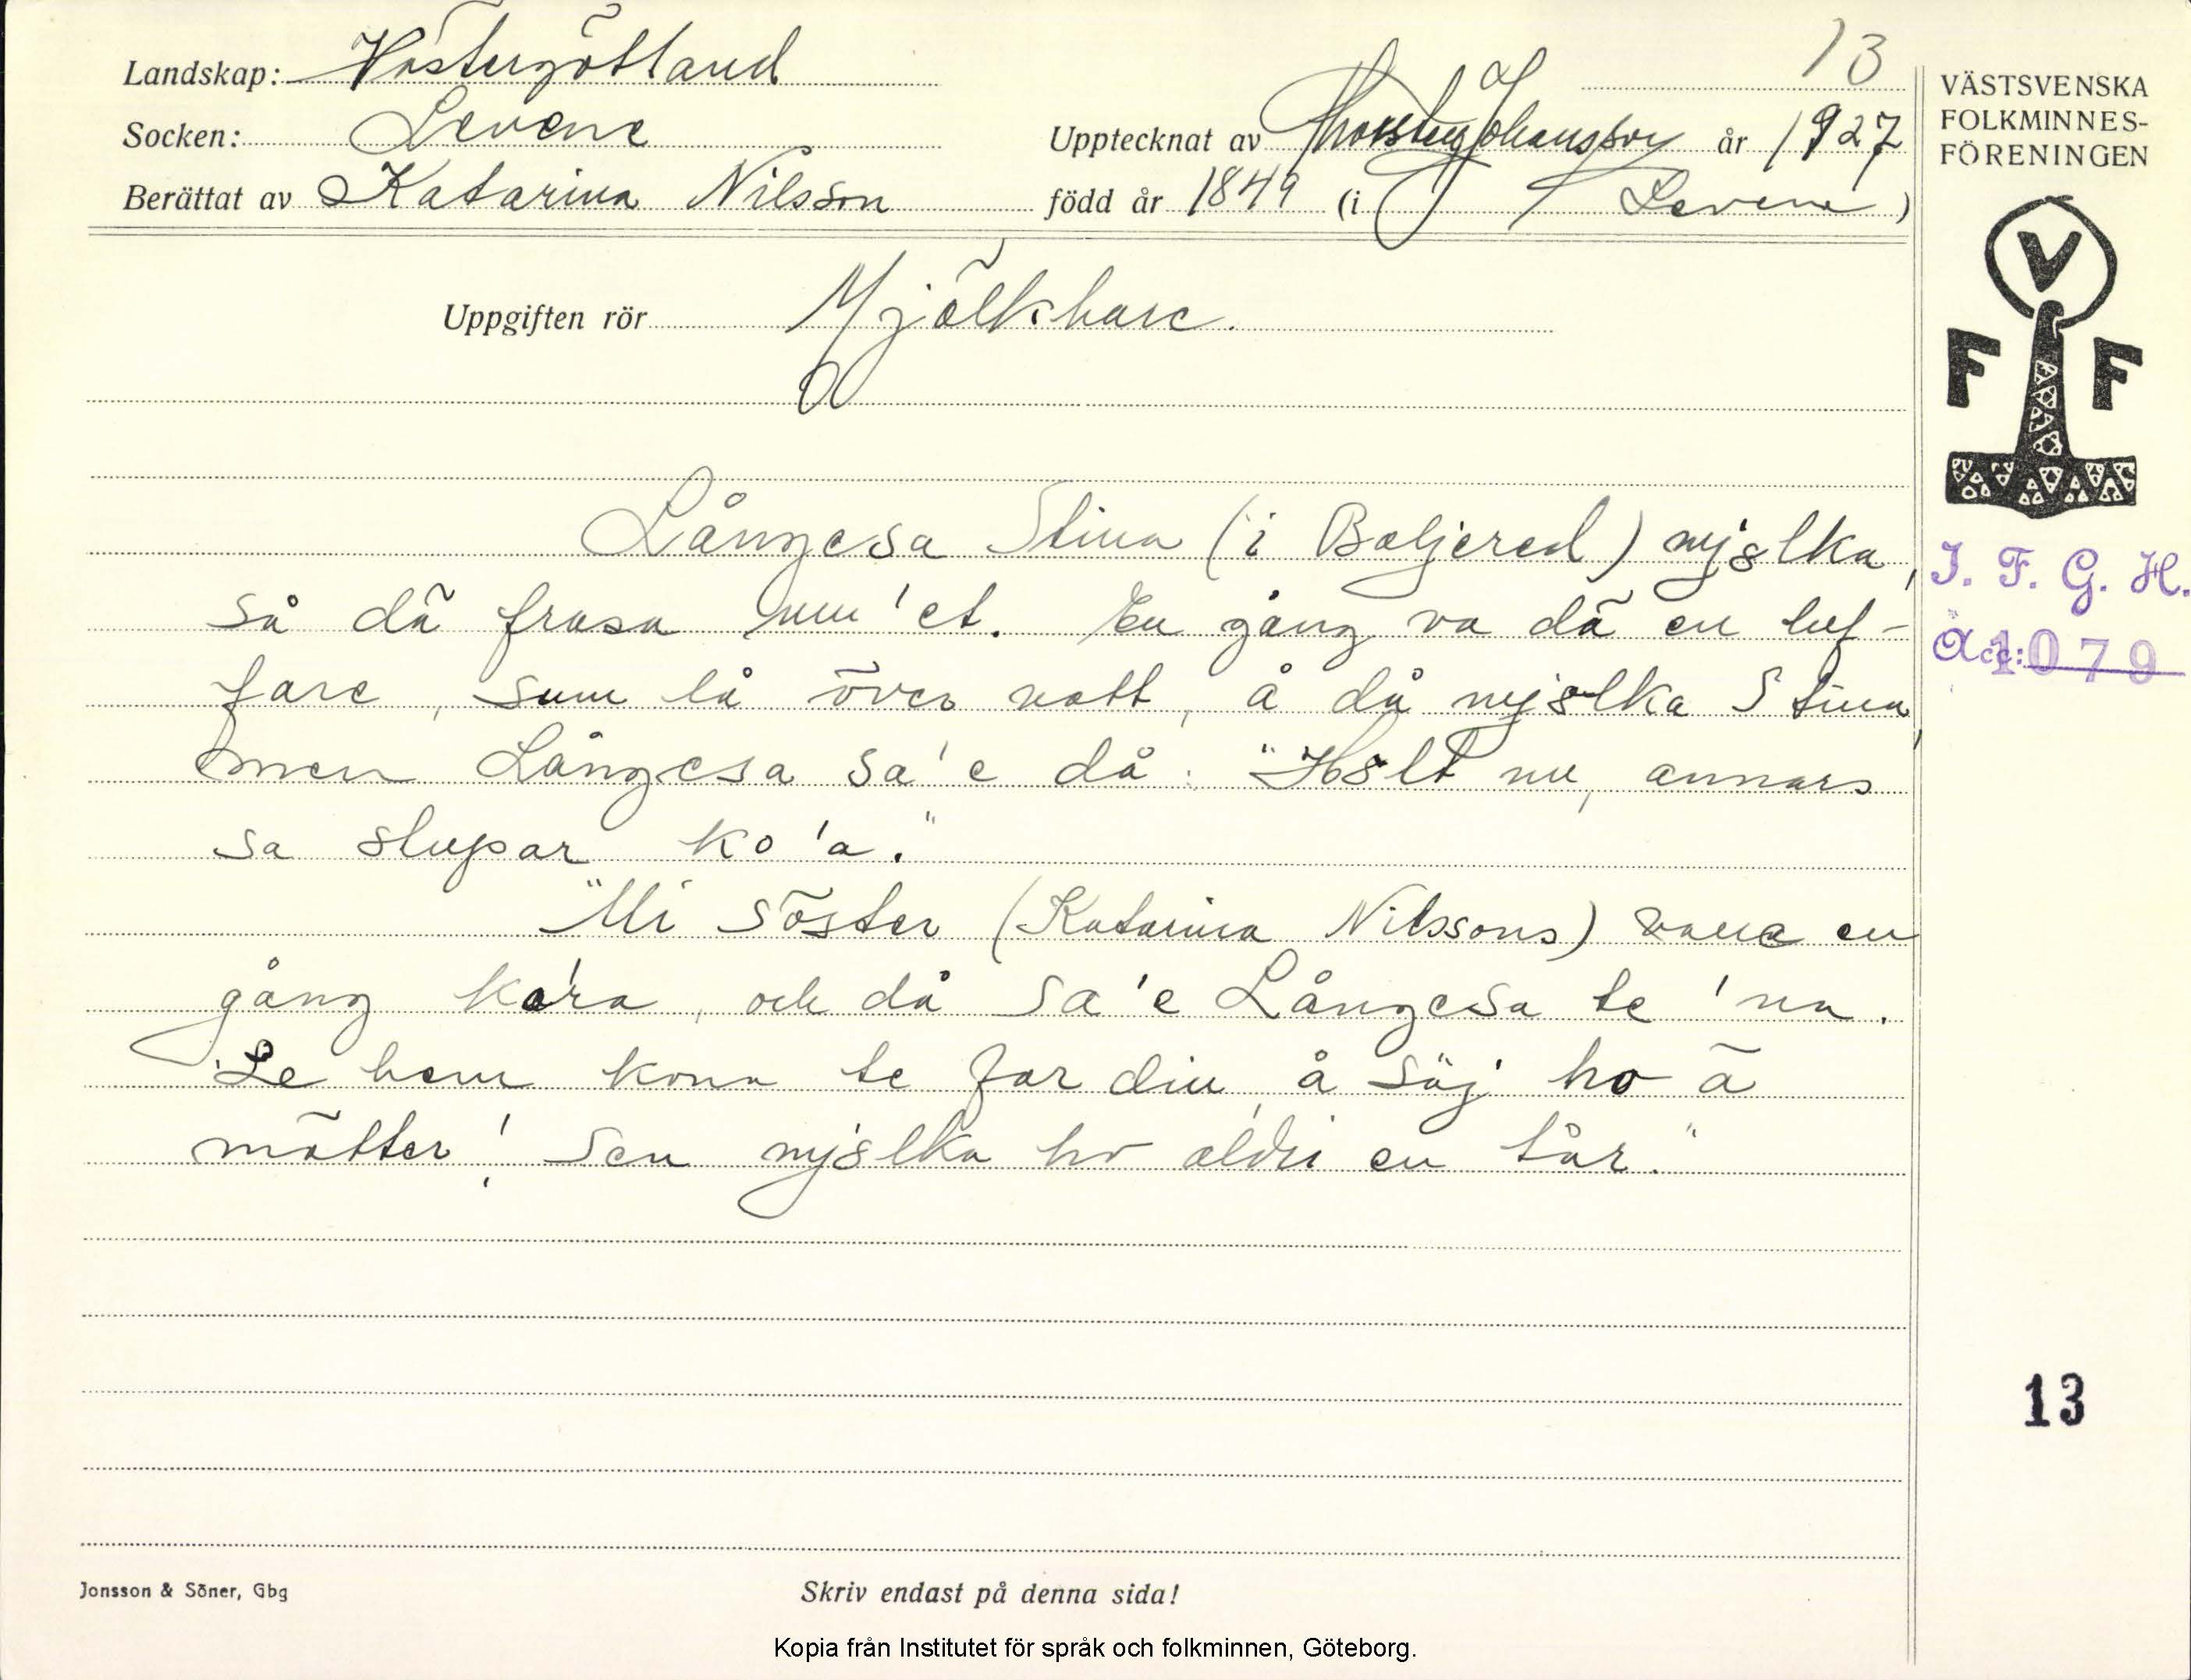 13
Landskap: Västergötland
Socken: Levene
Upptecknat av Thorsten Johansson år 1927
Berättat av Katarina Nilsson född år 1849 (i Levene)
VÄSTSVENSKA
FOLKMINNES-
FÖRENINGEN
V
F F
Uppgiften rör Mjölkhare.
Långesa Stina (i Baljered) mjölka,
så dä frasa um'et. En gång va dä en luf-
fare, sum lå över natt, å då mjölka Stina,
men Långesa sa'e då: "Hölt nu, annars
sa stupar ko'a."
"Mi söster (Katarina Nilssons) en
gång, och då sa'e Långesa te 'na.
"Le hem kona te far din, å säj ho ä
mätter! Sen mjölka ho aldri en tår."
I. F. G. H.
Acc: 1079
13
Jonsson & Söner, Gbg
Skriv endast på denna sida!
Kopia från Institutet för språk och folkminnen, Göteborg.